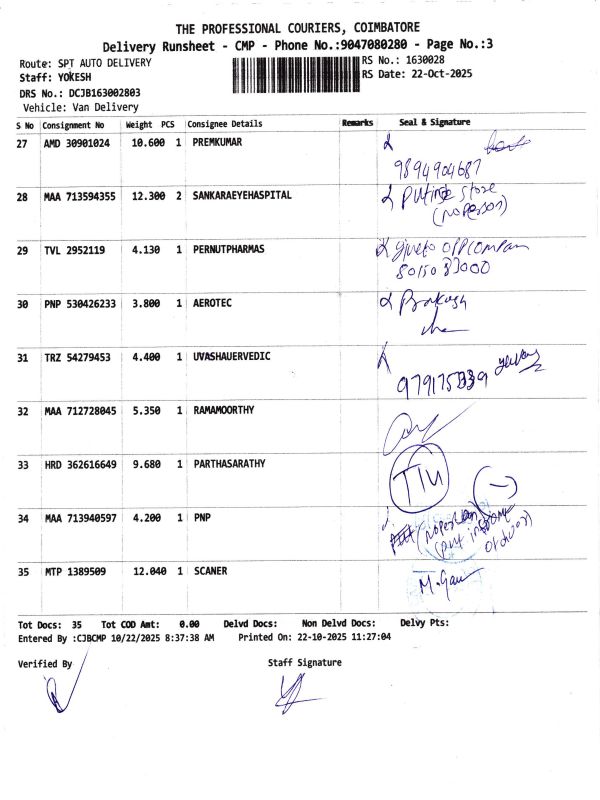 THE PROFESSIONAL COURIERS, COIMBATORE
Delivery Runsheet - CMP - Phone No.:9047080280 - Page No.:3
Route: SPT AUTO DELIVERY
RS No.: 1630028
Staff: YOKESH
RS Date: 22-Oct-2025
DRS No.: DCJB163002803
Vehicle: Van Delivery
S No Consignment No Weight PCS Consignee Details Remarks Seal & Signature
27 AMD 30901024 10.600 1 PREMKUMAR
9894904687
28 MAA 713594355 12.300 2 SANKARAEYEHOSPITAL
store
(noperson)
29 TVL 2952119 4.130 1 PERNUTPHARMAS
30 PNP 530426233 3.800 1 AEROTEC
Prakash
31 TRZ 54279453 4.400 1 UVASHAUERVEDIC
32 MAA 712728045 5.350 1 RAMAMOORTHY
33 HRD 362616649 9.680 1 PARTHASARATHY
34 MAA 713940597 4.200 1 PNP
35 MTP 1389509 12.040 1 SCANER
Tot Docs: 35 Tot COD Amt: 0.00 Delvd Docs: Non Delvd Docs: Delvy Pts:
Entered By :CJBCMP 10/22/2025 8:37:38 AM Printed On: 22-10-2025 11:27:04
Verified By Staff Signature